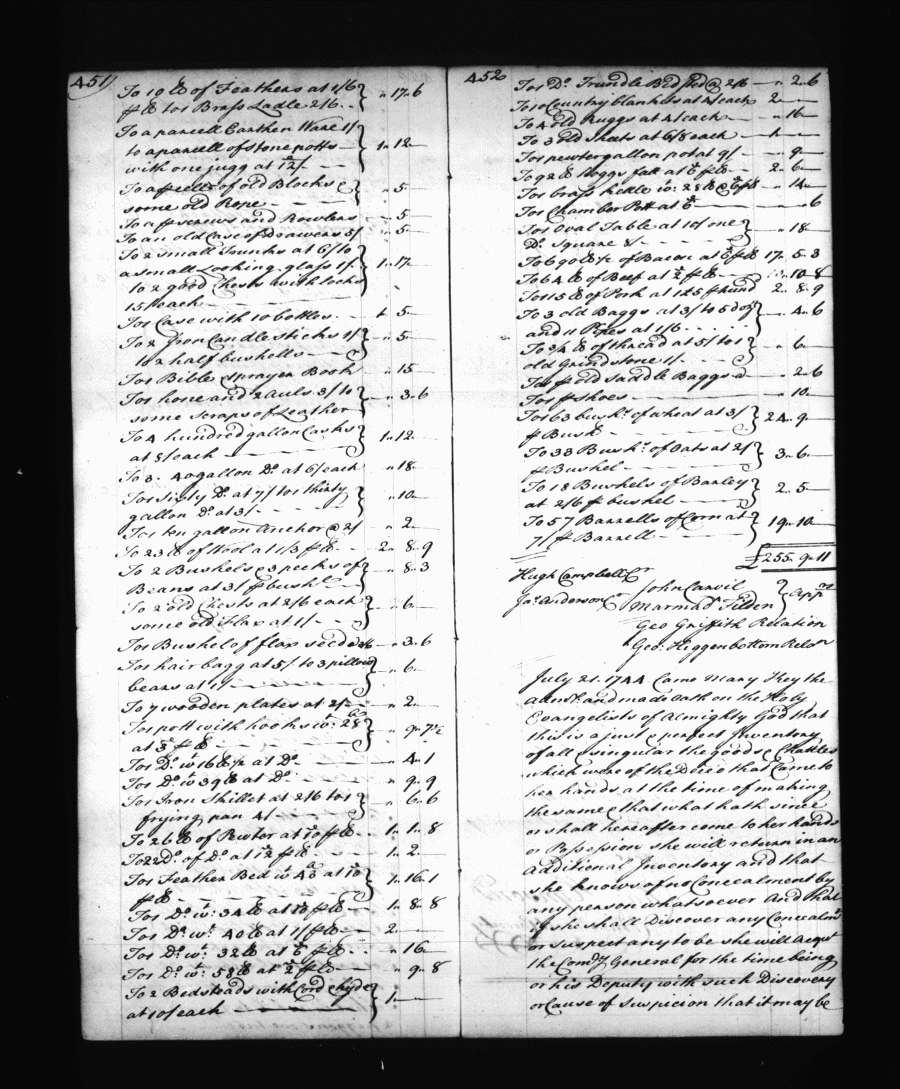 451
To 19 lb of Feathers at 1/6
p lb to 1 Brass Ladle 2/6 - - } " 17 " 6
To a parcell Earthen Ware 1/
to a parcell of stone potts
with one jugg at 12/ - - } 1 " 12 —
To a p cell of old Blocks &
some old Rope - - } " 5 —
To a p screws and Rowlers " 5 —
To an old Case of Drawers 5/ " 5 —
To 2 small Trunks at 6/ to
a small Looking glass 1/
to 2 good Chests with locks
15/ each - - } 1 " 17 —
To 1 Case with 10 bottles - - " 5 —
To 2 Iron Candlesticks 1/
to 2 half bushells - - } " 5 —
To 1 Bible & prayer Book " 15 —
To 1 hone and 2 auls 3/ to
some scraps of Leather } " 3 " 6
To 4 hundred gallon Casks
at 8/ each - - } 1 " 12 —
To 3 . 40 gallon Do. at 6/ each " 18 —
To 1 sixty Do. at 7/ to 1 thirty
gallon Do. at 3/ - - } " 10 —
To 1 ten gallon Anchor @ 2/ " 2 —
To 23 lb of Wool at 1/3 p lb 2 " 8 " 9
To 2 Bushels & 3 pecks of
Beans at 3/ p bushl } " 8 " 3
To 2 old Chests at 2/6 each
some old flax at 1/ - - } " 6 —
To 1 Bushel of flax seed " 3 " 6
To 1 hair bagg at 5/ to 3 pillow
bears at 1/ - - } " 6 —
To 7 wooden plates at 2/ " 2 —
To 1 pott with hooks wt. 28 lb
at 3d p lb - - } " 7½
To 1 Do. wt 16 lb ½ at Do. " 4 " 1
To 1 Do. wt 39 lb at Do. " 9 " 9
To 1 Iron Skillet at 2/6 to 1
frying pan 4/ - - } " 6 " 6
To 26 lb of Pewter at 10d p lb 1 " 1 " 8
To 22 Do. of Do. at 12d p lb 1 " 2 —
To 1 Feather Bed wt 43 lb at 10d
p lb - - } 1 " 16 " 1
To 1 Do. wt: 34 lb at 10d p lb 1 " 8 " 8
To 1 Do. wt: 40 lb at 1/ p lb 2 —
To 1 Do. wt: 32 lb at 6d p lb " 16 —
To 1 Do. wt: 58 lb at 2d p lb " 9 " 8
To 2 Bedsteads with Cord & hyde
at 10/ each } 1 —
452
To 1 Do. Trundle Bedsted @ 2/6 " 2 " 6
To 10 Country blankets at 4/ each 2 —
To 4 old Ruggs at 4/ each " 16 —
To 3 old Sheets at 6/8 each 1 —
To 1 pewter gallon pot at 9/ " 9 —
To 92 lb Hoggs fatt at 6d p lb 2 " 6 —
To 1 brass kettle wt: 28 lb @ 6d p lb " 14 —
To 1 Chamber Pott at 6d " 6
To 1 Oval Table at 10/ one
Do. Square 8/ - - } " 18 —
To 690 lb ½ of Bacon at 6d p lb 17 " 5 " 3
To 64 lb of Beef at 2d p lb " 10 " 8
To 115 lb of Pork at 125 p hund 2 " 8 " 9
To 3 old Baggs at 3/ to 5 doz
and 11 Pipes at 1/6 - - } " 4 " 6
To 3/4 lb of thread at 5/ to 1
old Grindstone 1/ - - } " 6 —
To 1 p old saddle Baggs " 2 " 6
To 1 p shoes " 10 —
To 163 bushs. of wheat at 3/
p Bush - - } 24 " 9 —
To 33 Bushs. of Oats at 2/
p Bushel - - } 3 " 6 —
To 18 Bushels of Barley
at 2/6 p bushel } 2 " 5 —
To 57 Barrells of Corn at
7/ p Barrell - - } 19 " 10 —
£255 " 9 " 11
Hugh Campbell Cr
Jas. Anderson Cr
John Carvil
Marmad. Tilden } Apprs
Geo Griffith Relation
Geo: Higgenbottom Relan
July 21. 1744 Came Mary They the
admx. and made oath on the Holy
Evangelists of Almighty God that
this is a just & perfect Inventory
of all & singular the goods & Chattles
which were of the Decd that Came to
her hands at the time of making
the same & that what hath since
or shall hereafter come to her hands
or Possession she will return in an
additional Inventory and that
she knows of no Concealment by
any person whatsoever And that
if she shall Discover any Concealmt
or suspect any to be she will Acqut
the Comry General for the time being
or his Deputy with such Discovery
or Cause of Suspicion that it may be